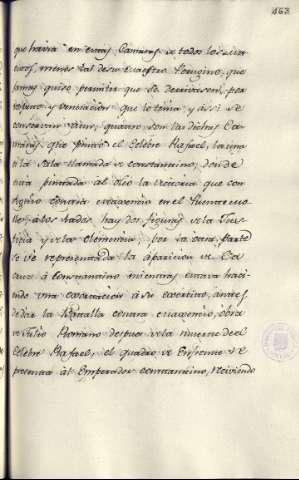 163
que havia en estas Camaras de todos los
menos las de su Maestro Perugino, que
jamas quiso permitir que se derivasen, por
respeto y veneracion que le tenia y assi se
conservan quatro son las dichas Ca
maras que pintó el Celebre Rafael, la una
è la Sala llamada de Constantino, donde
esta pintada al oleo la vitoria que con
siguio contra Maxencio en el Puente
à los lados hay dos figuras de la Jus
ticia y de la Clemencia, por la otra parte
se ve representada la aparicion de la
Cruz à Constantino mientras estava haci
endo una à su exercito, antes
de dar la Batalla contra Maxencio, obra
de Julio Romano despues de la muerte del
Celebre Rafael, el quadro de enfrente re
presenta al Emperador Constantino, reciviendo